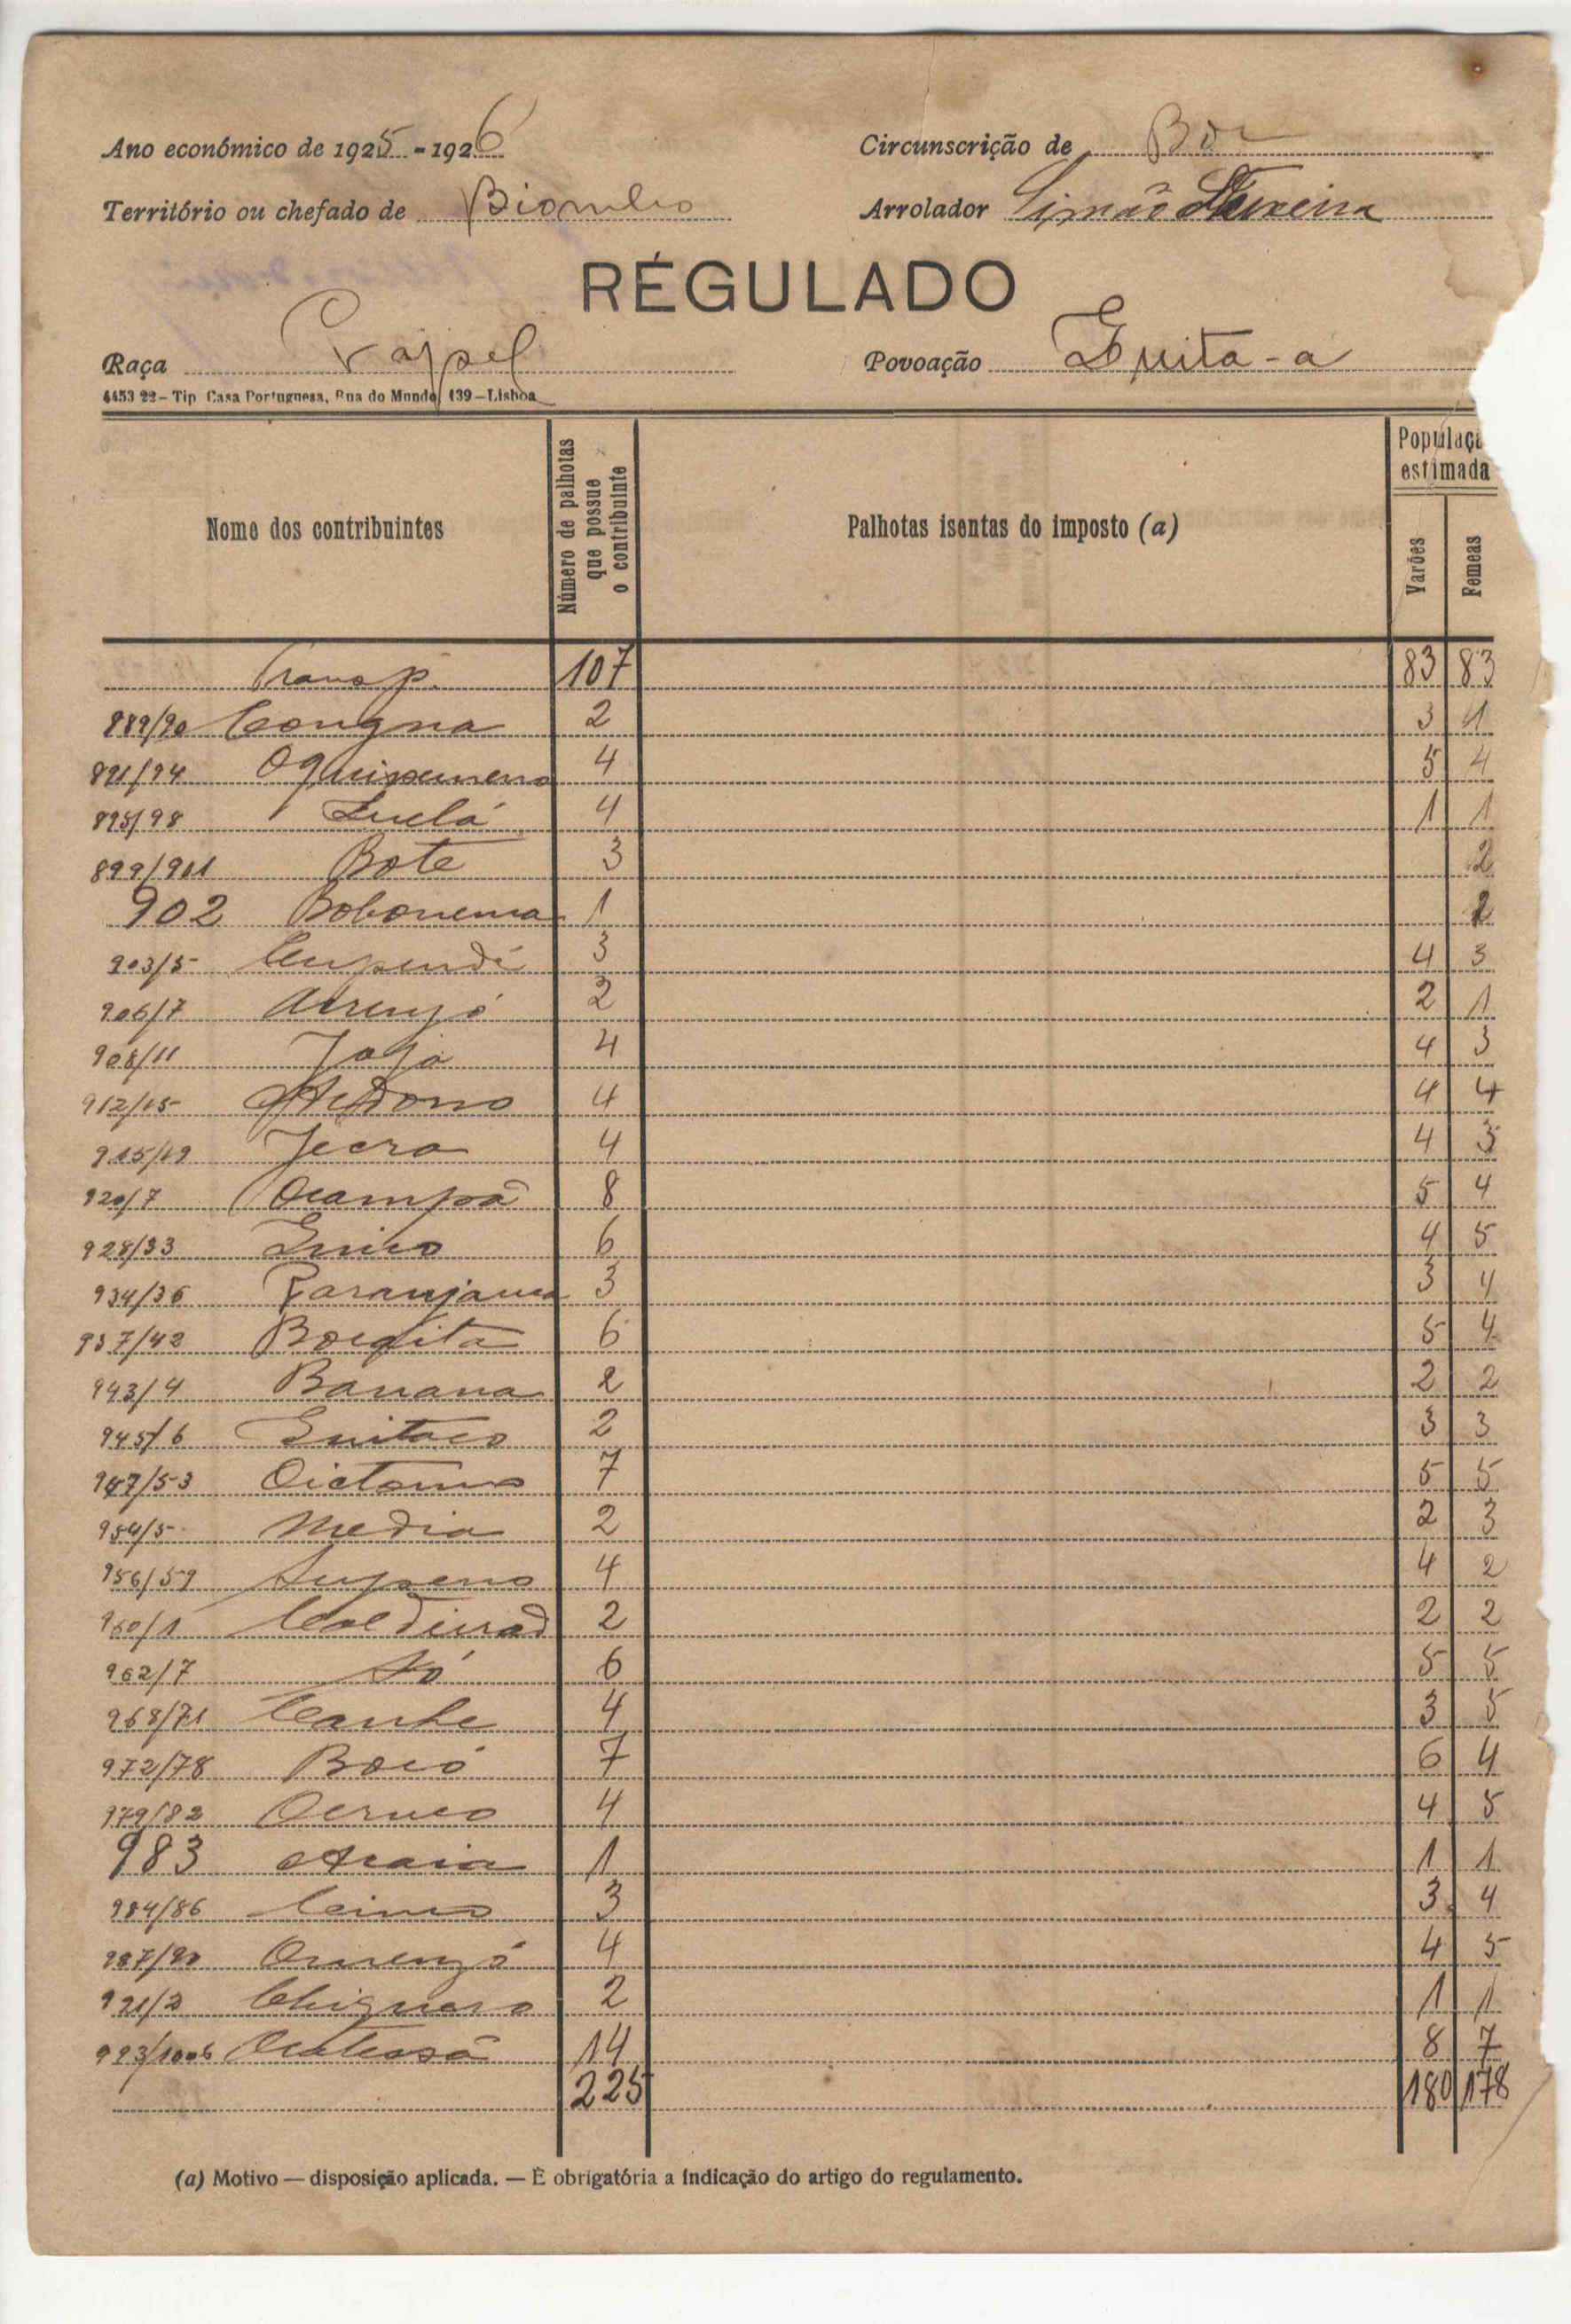 Ano económico de 1925-1926 Circunscrição de Bor
Território ou chefado de Biombo Arrolador Simão Teixeira
RÉGULADO
Raça Papel Povoação Quita-a
4453 22 – Tip Casa Portuguesa, Rua do Mundo, 139 – Lisboa
Nome dos contribuintes
Número de palhotas que possue o contribuinte
Palhotas isentas do imposto (a)
Populaçã estimada
Varões
Femeas
Transp. 107 83 83
889/90 Congna 2 3 1
891/94 4 5 4
895/98 4 1 1
899/901 Bote 3 2
902 Bobonema 1 2
903/5 Cupendi 3 4 3
906/7 2 2 1
908/11 Jojo 4 4 3
912/15 4 4 4
915/19 Jecra 4 4 3
920/7 Ocampoã 8 5 4
928/33 6 4 5
934/36 3 3 4
937/42 6 5 4
943/4 Banana 2 2 2
945/6 2 3 3
947/53 7 5 5
954/5 Media 2 2 3
956/59 4 4 2
960/1 2 2 2
962/7 6 5 5
968/71 Canhe 4 3 5
972/78 Bocó 7 6 4
979/82 4 4 5
983 1 1 1
984/86 3 3 4
987/90 4 4 5
991/2 2 1 1
993/1006 14 8 7
225 180 178
(a) Motivo — disposição aplicada. — É obrigatória a indicação do artigo do regulamento.